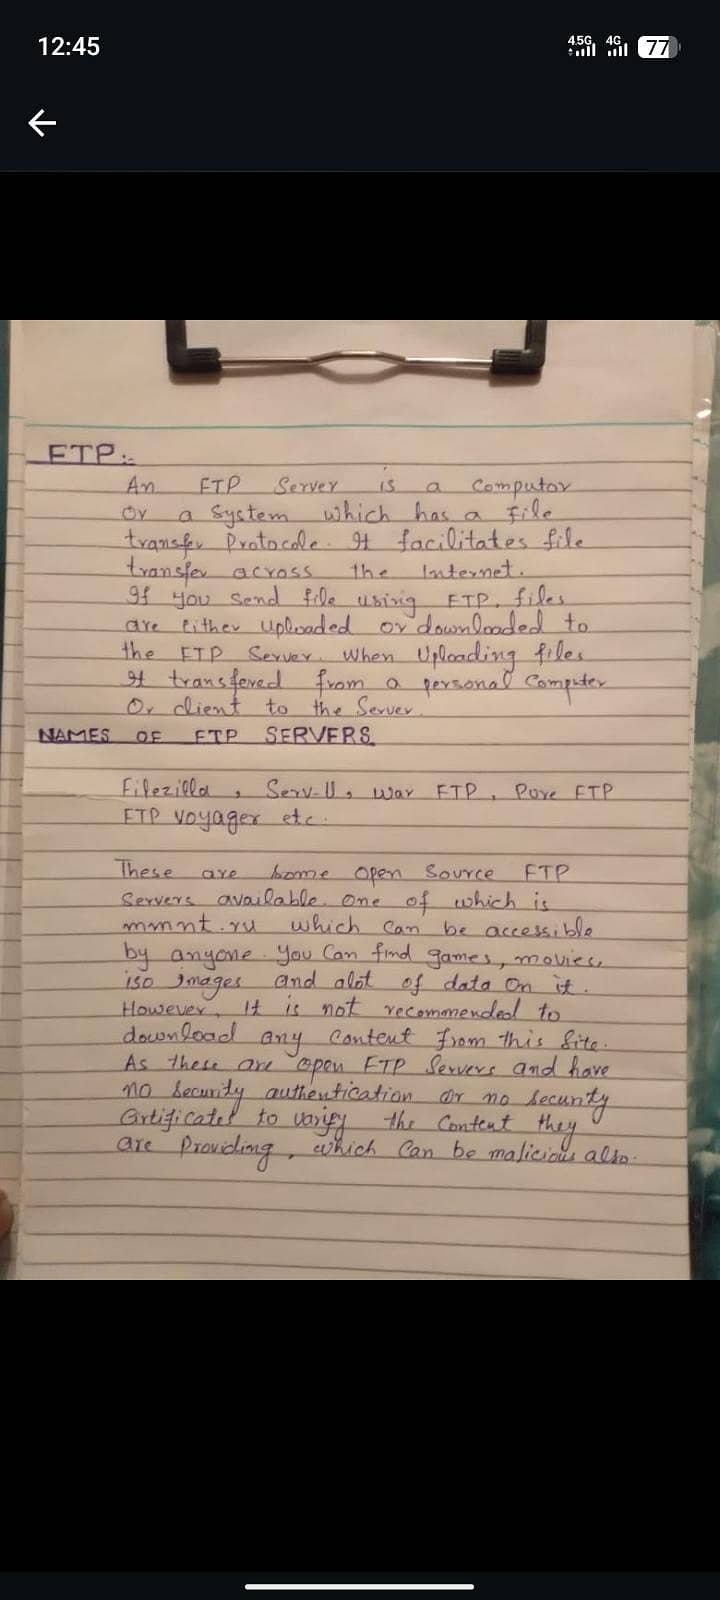 12:45
4.5G 4G 77
FTP:-
An FTP Server is a Computor
Or a System which has a file
transfer Protocole. It facilitates file
transfer across the Internet.
If you send file using FTP, files
are either uploaded or downloaded to
the FTP Server. When Uploading files
It transfered from a personal Computer
Or client to the Server.
NAMES OF FTP SERVERS
Filezilla, Serv-U, War FTP, Pure FTP
FTP Voyager etc.
These are some open source FTP
Servers available. One of which is
mmnt.ru which can be accessible
by anyone. You Can find games, movies,
iso images and alot of data On it.
However, It is not recommended to
download any Content from this Site.
As these are open FTP Servers and have
no Security authentication Or no security
Certificates to varify the Content they
are Providing, which Can be malicious also.